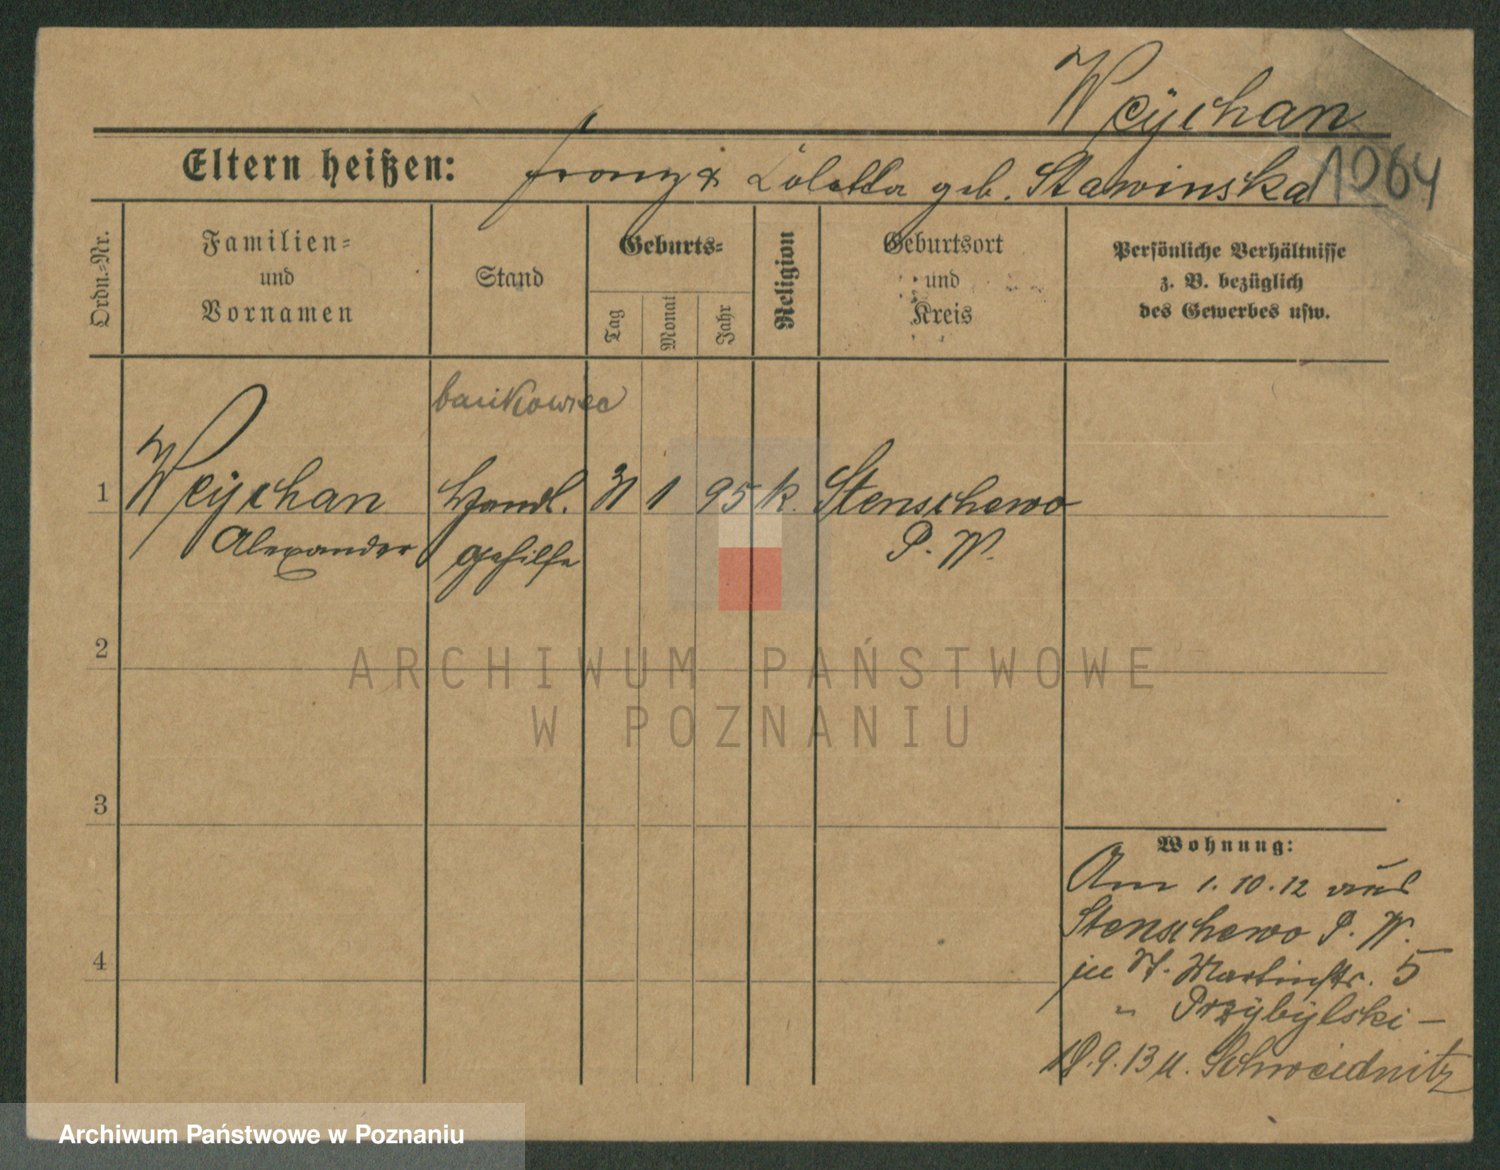 Weÿchan
Eltern heißen: Franz & Loletta geb. Stawinska
1064
Ordn.-Nr.
Familien- und Vornamen
Stand
Geburts-
Tag
Monat
Jahr
Religion
Geburtsort und Kreis
Persönliche Verhältnisse
z. B. bezüglich
des Gewerbes usw.
bankowiec
1 Weÿchan Handl. 31 1 95 k. Stenschewo
Alexander gehilfe P. W.
2
3
4
Wohnung:
Am 1. 10. 12 aus
Stenschewo P. W.
zu St. Martinstr. 5
" Przÿbÿlski —
18. 9. 13 u. Schweidnitz
ARCHIWUM PAŃSTWOWE
W POZNANIU
Archiwum Państwowe w Poznaniu